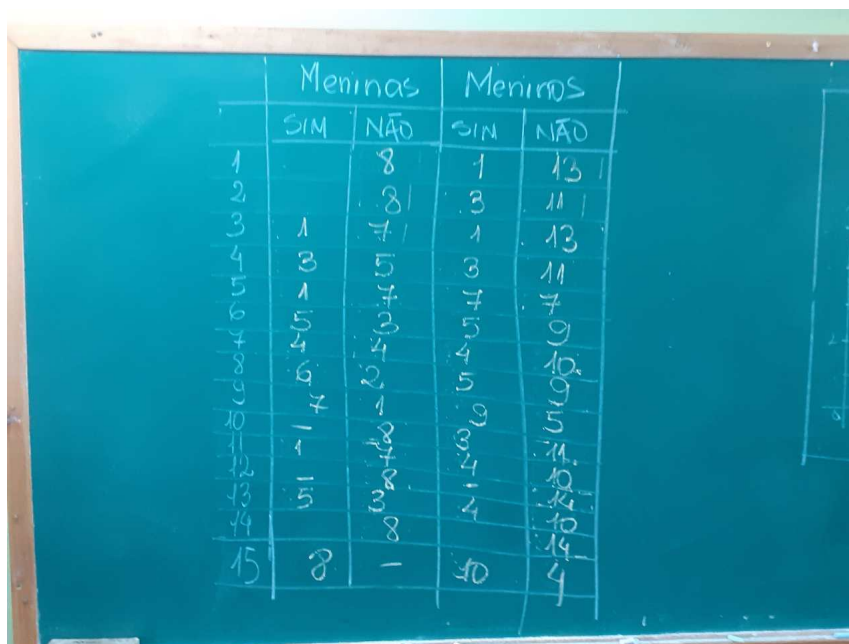 Meninas Meninos
SIM NÃO SIM NÃO
1 8 1 13
2 8 3 11
3 1 7 1 13
4 3 5 3 11
5 1 7 7 7
6 5 3 5 9
7 4 4 4 10
8 6 2 5 9
9 7 1 9 5
10 - 8 3 11
11 1 7 4 10
12 - 8 - 14
13 5 3 4 10
14 8 14
15 8 - 10 4